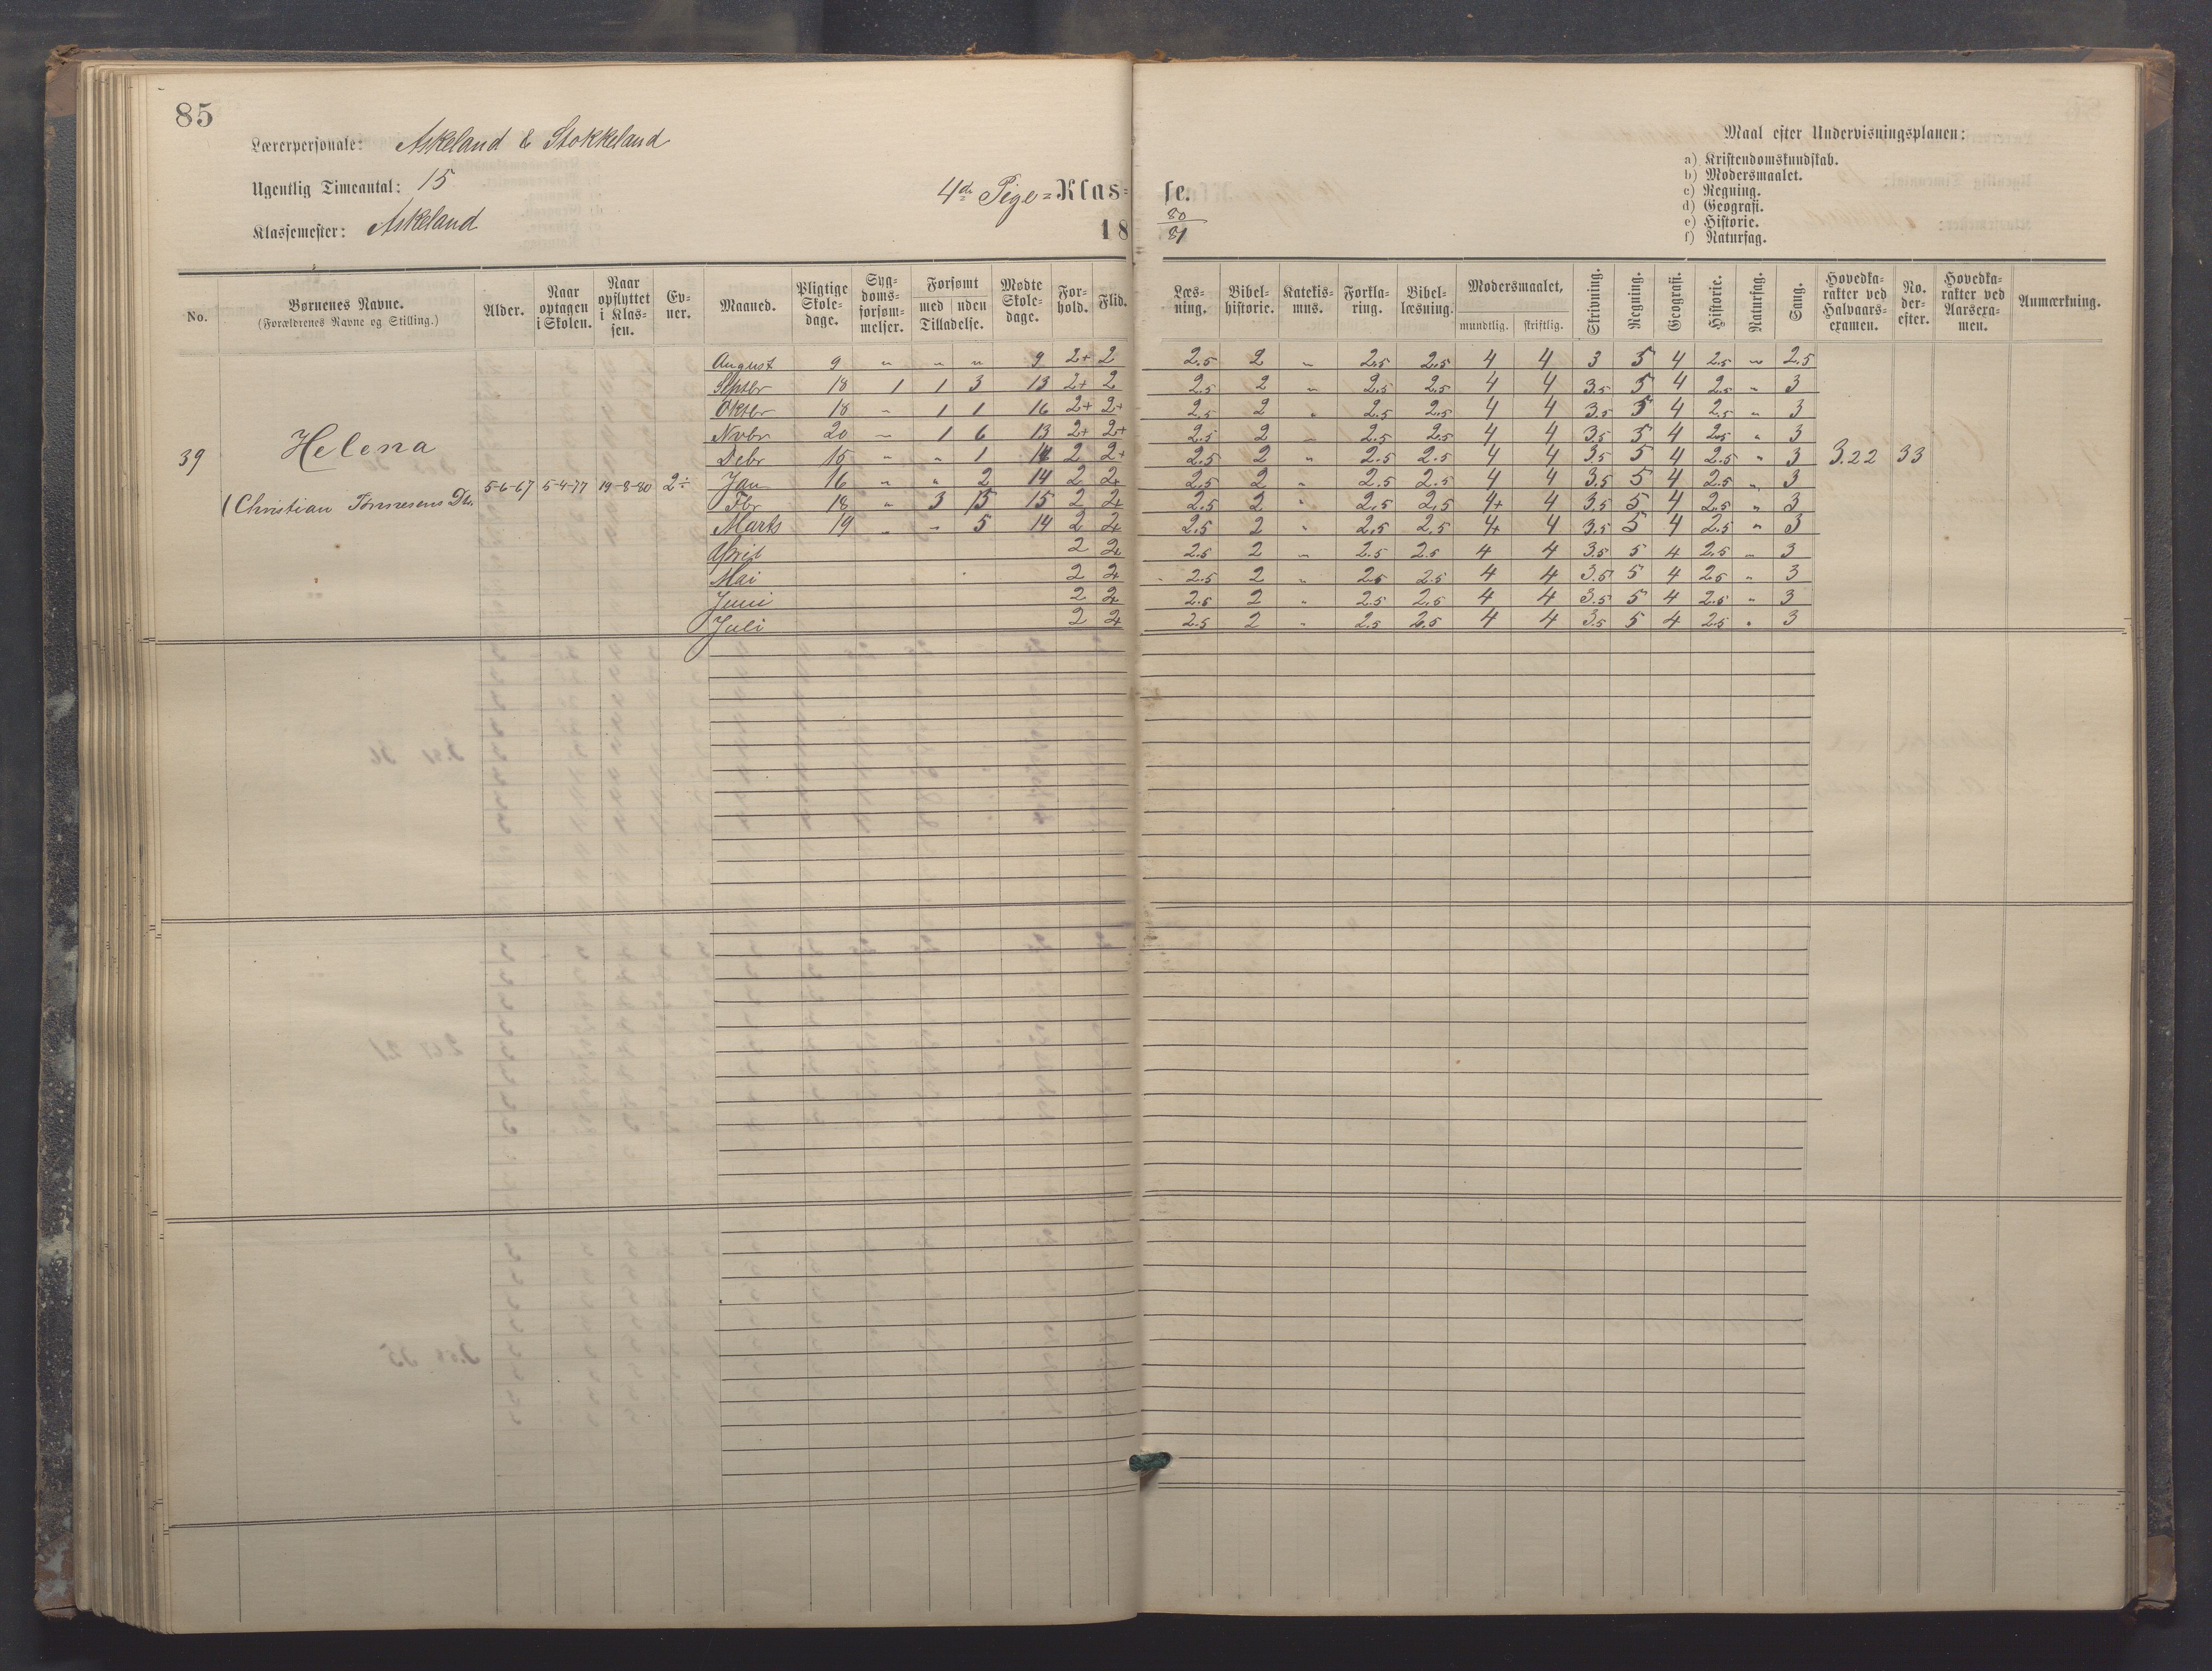 85
Lærerpersonale: Askeland & Stokkeland
Ugentlig Timeantal: 15
Klassemester: Askeland
4de Pige=Klasse.
18 80/81
Maal efter Undervisningsplanen:
a) Kristendomskundskab.
b) Modersmaalet.
c) Regning.
d) Geografi.
e) Historie.
f) Naturfag.
No. | Børnenes Navne. (Forældrenes Navne og Stilling.) | Alder. | Naar optagen i Skolen. | Naar opflyttet i Klassen. | Evner. | Maaned. | Pligtige Skoledage. | Sygdomsforsømmelser. | Forsømt med | uden Tilladelse. | Mødte Skoledage. | Forhold. | Flid. | Læsning. | Bibelhistorie. | Katekismus. | Forklaring. | Bibellæsning. | Modersmaalet, mundtlig. | skriftlig. | Skrivning. | Regning. | Geografi. | Historie. | Naturfag. | Sang. | Hovedkarakter ved Halvaarsexamen. | No. derefter. | Hovedkarakter ved Aarsexamen. | Anmærkning.
39 Helena
(Christian Tønnesens Dt. 5-6-67 5-4-77 19-8-80 2÷
August 9 " " " 9 2+ 2 2.5 2 " 2.5 2.5 4 4 3 5 4 2.5 " 2.5
Septbr 18 1 1 3 13 2+ 2 2.5 2 " 2.5 2.5 4 4 3.5 5 4 2.5 " 3
Oktbr 18 " 1 1 16 2+ 2+ 2.5 2 " 2.5 2.5 4 4 3.5 5 4 2.5 " 3
Nvbr 20 " 1 6 13 2+ 2+ 2.5 2 " 2.5 2.5 4 4 3.5 5 4 2.5 " 3
Debr 15 " " 1 14 2 2+ 2.5 2 " 2.5 2.5 4 4 3.5 5 4 2.5 " 3 3.22 33
Jan 16 " " 2 14 2 2+ 2.5 2 " 2.5 2.5 4 4 3.5 5 4 2.5 " 3
Fbr 18 " 3 15 2 2+ 2.5 2 " 2.5 2.5 4+ 4 3.5 5 4 2.5 " 3
Marts 19 " " 5 14 2 2+ 2.5 2 " 2.5 2.5 4+ 4 3.5 5 4 2.5 " 3
April 2 2+ 2.5 2 " 2.5 2.5 4 4 3.5 5 4 2.5 " 3
Mai 2 2+ 2.5 2 " 2.5 2.5 4 4 3.5 5 4 2.5 " 3
Juni 2 2+ 2.5 2 " 2.5 2.5 4 4 3.5 5 4 2.5 " 3
Juli 2 2+ 2.5 2 " 2.5 2.5 4 4 3.5 5 4 2.5 " 3